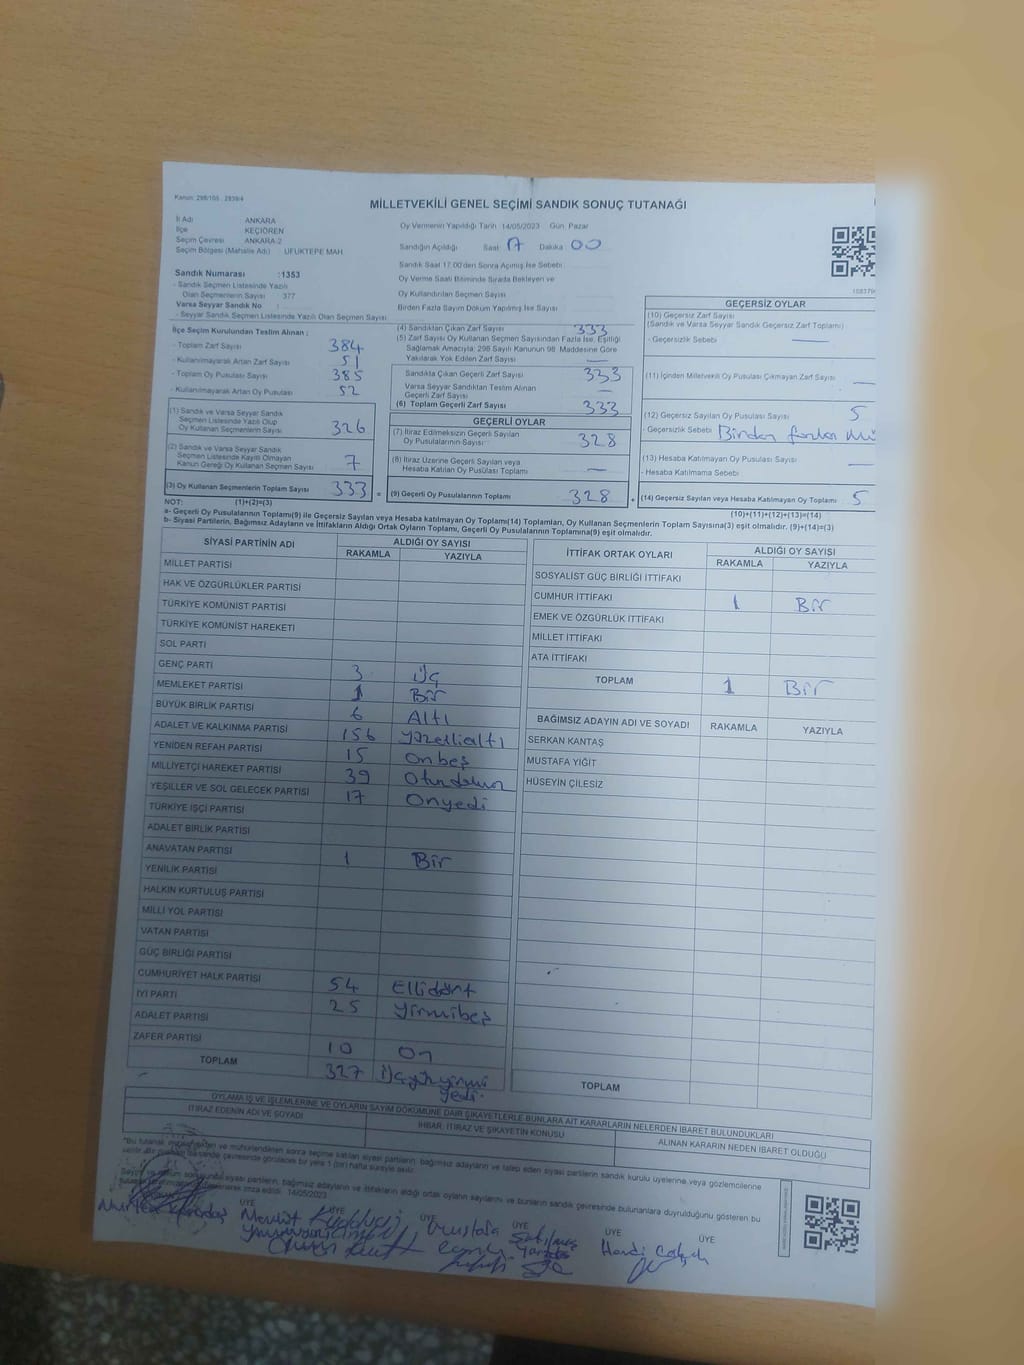 Kanun: 298/105 , 2839/4
MİLLETVEKİLİ GENEL SEÇİMİ SANDIK SONUÇ TUTANAĞI
İl Adı ANKARA
İlçe KEÇİÖREN
Seçim Çevresi ANKARA-2
Seçim Bölgesi (Mahalle Adı) UFUKTEPE MAH
Oy Vermenin Yapıldığı Tarih 14/05/2023 Gün Pazar
Sandığın Açıldığı Saat 17 Dakika 00
Sandık Saat 17:00'den Sonra Açılmış İse Sebebi
Oy Verme Saati Bitiminde Sırada Bekleyen ve
Oy Kullandırılan Seçmen Sayısı
Birden Fazla Sayım Döküm Yapılmış İse Sayısı
Sandık Numarası :1353
- Sandık Seçmen Listesinde Yazılı
Olan Seçmenlerin Sayısı 377
Varsa Seyyar Sandık No
- Seyyar Sandık Seçmen Listesinde Yazılı Olan Seçmen Sayısı
İlçe Seçim Kurulundan Teslim Alınan ;
- Toplam Zarf Sayısı 384
- Kullanılmayarak Artan Zarf Sayısı 51
- Toplam Oy Pusulası Sayısı 385
- Kullanılmayarak Artan Oy Pusulası 52
(1) Sandık ve Varsa Seyyar Sandık
Seçmen Listesinde Yazılı Olup
Oy Kullanan Seçmenlerin Sayısı 326
(2) Sandık ve Varsa Seyyar Sandık
Seçmen Listesinde Kayıtlı Olmayan
Kanun Gereği Oy Kullanan Seçmen Sayısı 7
(3) Oy Kullanan Seçmenlerin Toplam Sayısı 333 =
(4) Sandıktan Çıkan Zarf Sayısı 333
(5) Zarf Sayısı Oy Kullanan Seçmen Sayısından Fazla İse, Eşitliği
Sağlamak Amacıyla; 298 Sayılı Kanunun 98. Maddesine Göre
Yakılarak Yok Edilen Zarf Sayısı —
Sandıkta Çıkan Geçerli Zarf Sayısı 333
Varsa Seyyar Sandıktan Teslim Alınan
Geçerli Zarf Sayısı —
(6) Toplam Geçerli Zarf Sayısı 333
GEÇERLİ OYLAR
(7) İtiraz Edilmeksizin Geçerli Sayılan
Oy Pusulalarının Sayısı 328
(8) İtiraz Üzerine Geçerli Sayılan veya
Hesaba Katılan Oy Pusulası Toplamı —
(9) Geçerli Oy Pusulalarının Toplamı 328 +
GEÇERSİZ OYLAR
(10) Geçersiz Zarf Sayısı
(Sandık ve Varsa Seyyar Sandık Geçersiz Zarf Toplamı)
- Geçersizlik Sebebi —
(11) İçinden Milletvekili Oy Pusulası Çıkmayan Zarf Sayısı —
(12) Geçersiz Sayılan Oy Pusulası Sayısı 5
- Geçersizlik Sebebi Birden fazla mü
(13) Hesaba Katılmayan Oy Pusulası Sayısı —
- Hesaba Katılmama Sebebi
(14) Geçersiz Sayılan veya Hesaba Katılmayan Oy Toplamı 5
NOT: (1)+(2)=(3) (10)+(11)+(12)+(13)=(14)
a- Geçerli Oy Pusulalarının Toplamı(9) ile Geçersiz Sayılan veya Hesaba katılmayan Oy Toplamı(14) Toplamları, Oy Kullanan Seçmenlerin Toplam Sayısına(3) eşit olmalıdır. (9)+(14)=(3)
b- Siyasi Partilerin, Bağımsız Adayların ve İttifakların Aldığı Ortak Oyların Toplamı, Geçerli Oy Pusulalarının Toplamına(9) eşit olmalıdır.
SİYASİ PARTİNİN ADI ALDIĞI OY SAYISI
RAKAMLA YAZIYLA
MİLLET PARTİSİ
HAK VE ÖZGÜRLÜKLER PARTİSİ
TÜRKİYE KOMÜNİST PARTİSİ
TÜRKİYE KOMÜNİST HAREKETİ
SOL PARTİ
GENÇ PARTİ 3 Üç
MEMLEKET PARTİSİ 1 Bir
BÜYÜK BİRLİK PARTİSİ 6 Altı
ADALET VE KALKINMA PARTİSİ 156 yüzellialtı
YENİDEN REFAH PARTİSİ 15 onbeş
MİLLİYETÇİ HAREKET PARTİSİ 39 otuzdokuz
YEŞİLLER VE SOL GELECEK PARTİSİ 17 onyedi
TÜRKİYE İŞÇİ PARTİSİ
ADALET BİRLİK PARTİSİ
ANAVATAN PARTİSİ 1 Bir
YENİLİK PARTİSİ
HALKIN KURTULUŞ PARTİSİ
MİLLİ YOL PARTİSİ
VATAN PARTİSİ
GÜÇ BİRLİĞİ PARTİSİ
CUMHURİYET HALK PARTİSİ 54 Ellidört
İYİ PARTİ 25 yirmibeş
ADALET PARTİSİ
ZAFER PARTİSİ 10 On
TOPLAM 327 Üçyüzyirmi
yedi
İTTİFAK ORTAK OYLARI ALDIĞI OY SAYISI
RAKAMLA YAZIYLA
SOSYALİST GÜÇ BİRLİĞİ İTTİFAKI
CUMHUR İTTİFAKI 1 Bir
EMEK VE ÖZGÜRLÜK İTTİFAKI
MİLLET İTTİFAKI
ATA İTTİFAKI
TOPLAM 1 Bir
BAĞIMSIZ ADAYIN ADI VE SOYADI RAKAMLA YAZIYLA
SERKAN KANTAŞ
MUSTAFA YİĞİT
HÜSEYİN ÇİLESİZ
TOPLAM
OYLAMA İŞ VE İŞLEMLERİNE VE OYLARIN SAYIM DÖKÜMÜNE DAİR ŞİKAYETLERLE BUNLARA AİT KARARLARIN NELERDEN İBARET BULUNDUKLARI
İTİRAZ EDENİN ADI VE SOYADI İHBAR, İTİRAZ VE ŞİKAYETİN KONUSU ALINAN KARARIN NEDEN İBARET OLDUĞU
14/05/2023
ÜYE ÜYE ÜYE ÜYE ÜYE
Mevlüt Mustafa